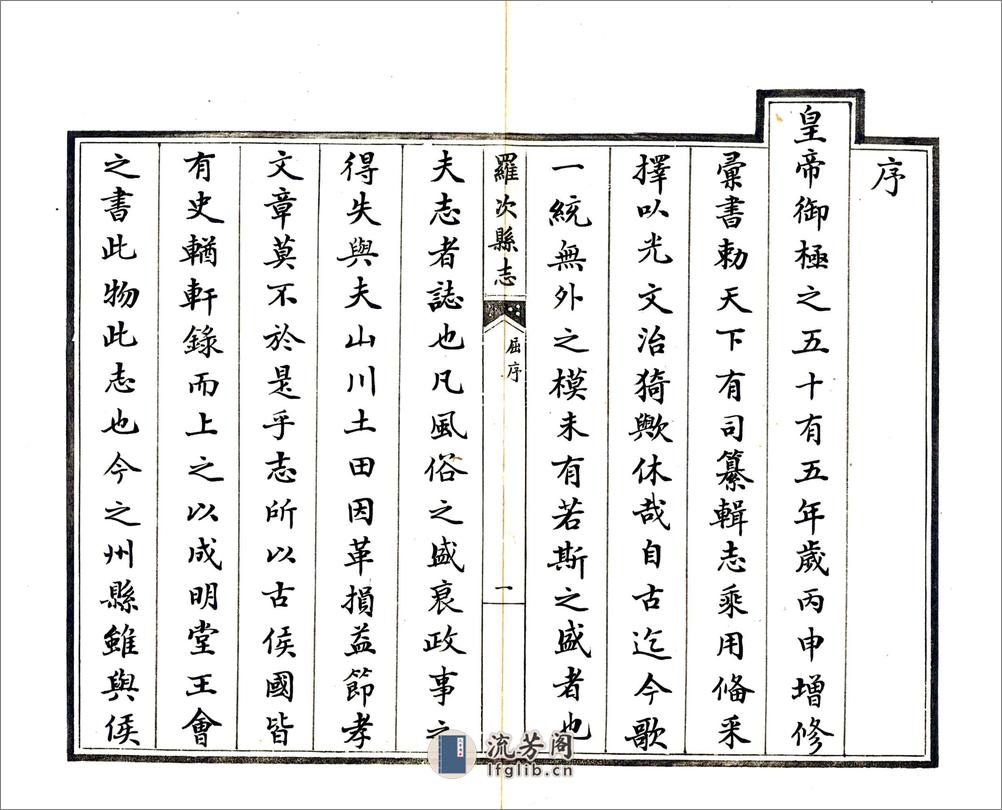 序
皇帝御極之五十有五年歲丙申增修
彙書勅天下有司纂輯志乘用俻采
擇㕥光文治猗歟休哉自古迄今歌
一統無外之模未有若斯之盛者也
羅次縣志
屈序
一
夫志者誌也凡風俗之盛衰政事之
得失與夫山川土田因革損益節孝
文章莫不於是乎志所以古侯國皆
有史輶軒錄而上之以成明堂王會
之書此物此志也今之州縣雖與侯
流芳阁
lfglib.cn